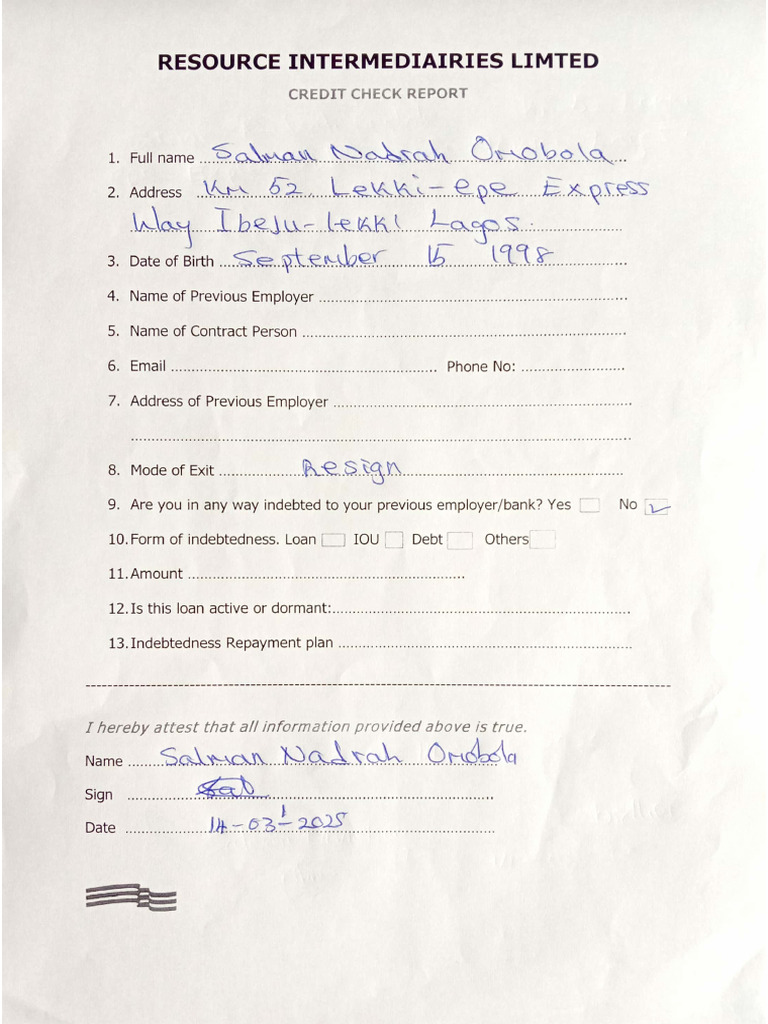 RESOURCE INTERMEDIAIRIES LIMTED
CREDIT CHECK REPORT
1. Full name Salman Nadrah Omobola
2. Address Km 52 Lekki-epe Express
Way Ibeju-lekki Lagos.
3. Date of Birth September 15 1998
4. Name of Previous Employer
5. Name of Contract Person
6. Email Phone No:
7. Address of Previous Employer
8. Mode of Exit Resign
9. Are you in any way indebted to your previous employer/bank? Yes No ✓
10. Form of indebtedness. Loan IOU Debt Others
11. Amount
12. Is this loan active or dormant:
13. Indebtedness Repayment plan
I hereby attest that all information provided above is true.
Name Salman Nadrah Omobola
Sign
Date 14-03-2025